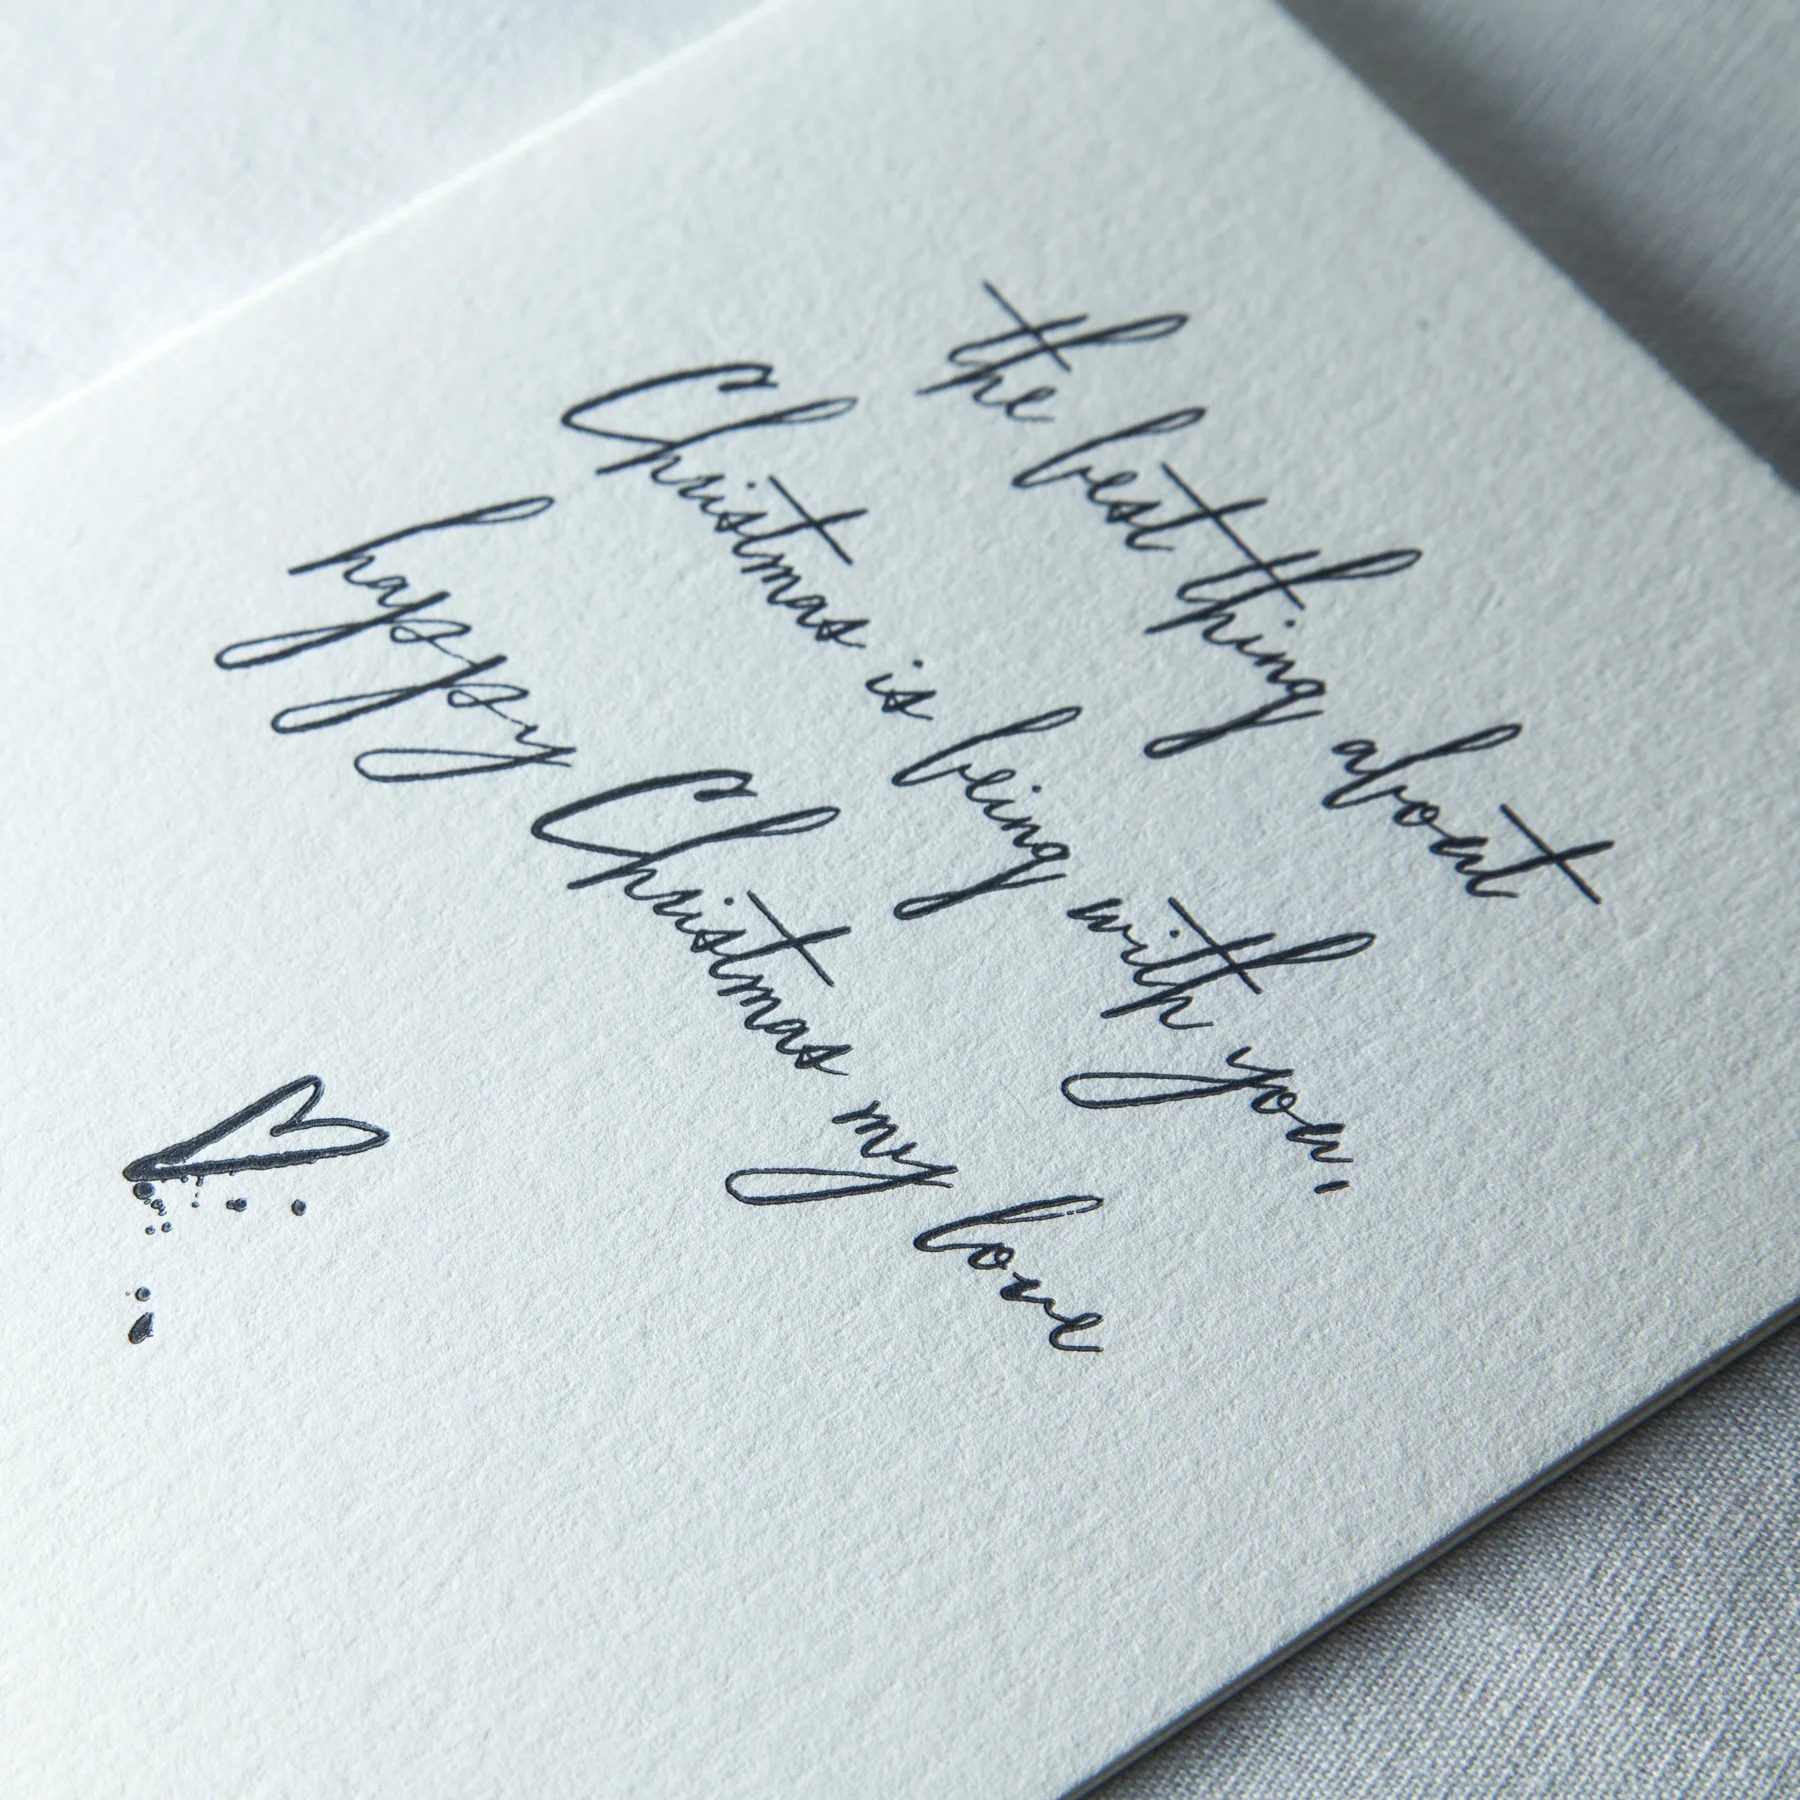 the best thing about
Christmas is being with you,
happy Christmas my love